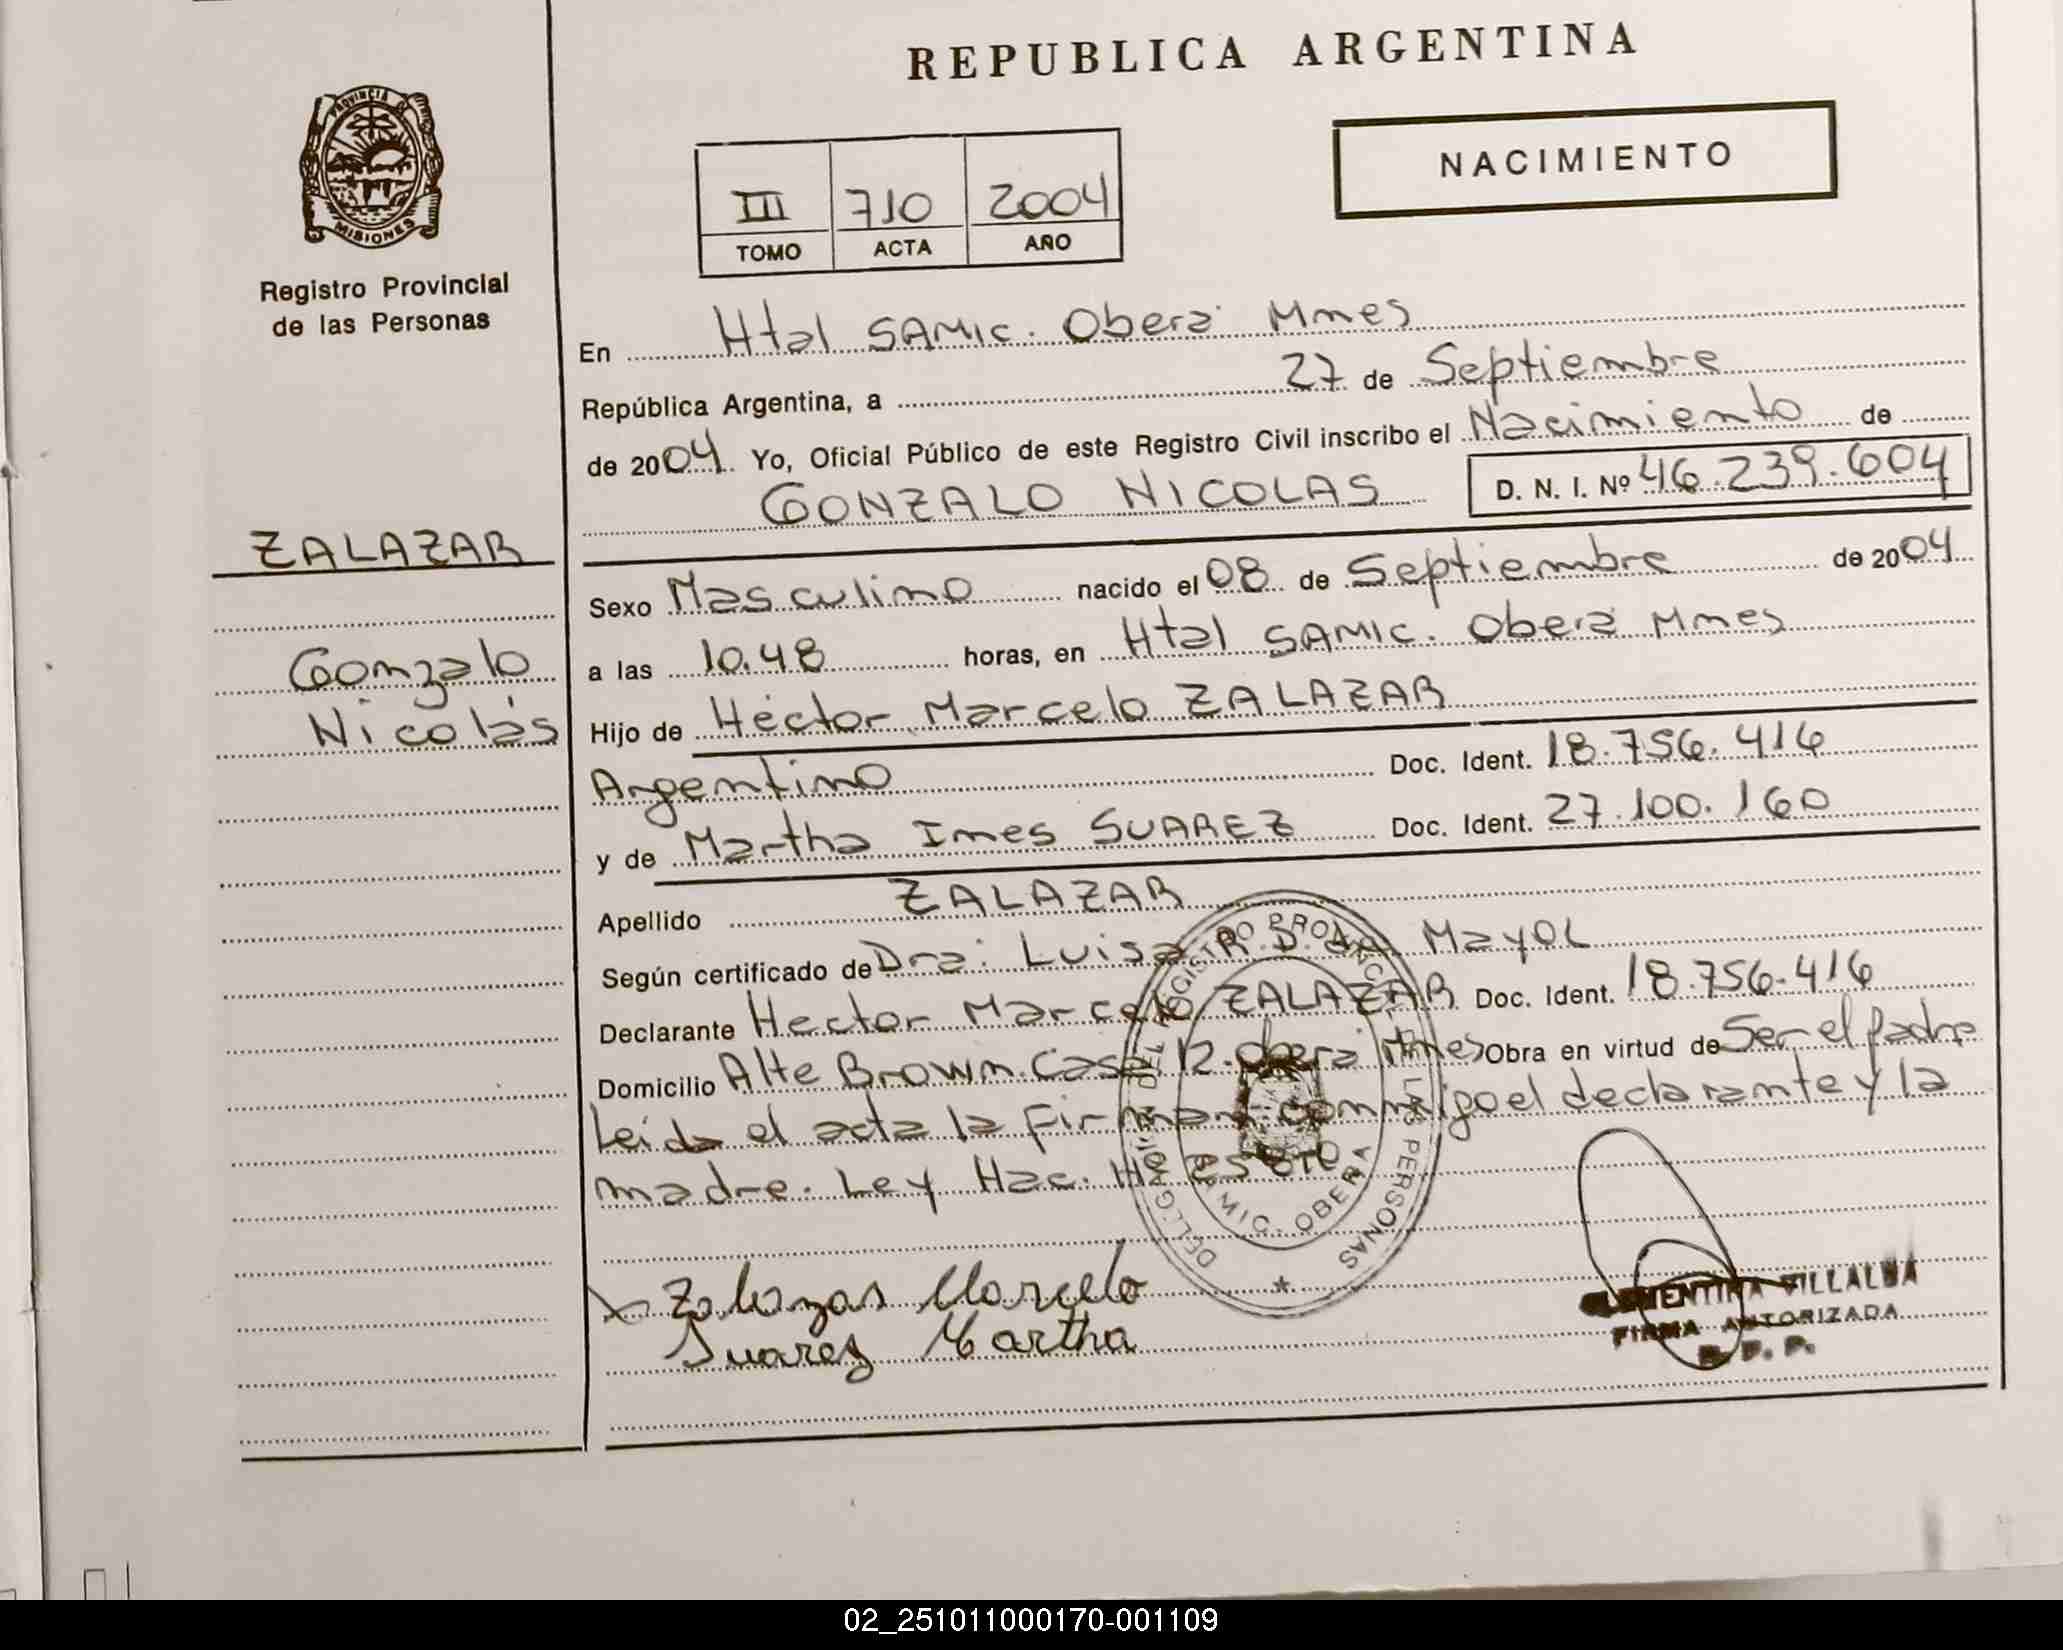 REPUBLICA ARGENTINA
PROVINCIA D
MISIONES
Registro Provincial
de las Personas
NACIMIENTO
III 710 2004
TOMO ACTA AÑO
En Htal SAMIC. Oberá Mnes
República Argentina, a 27 de Septiembre
de 2004 Yo, Oficial Público de este Registro Civil inscribo el Nacimiento de
GONZALO NICOLAS D. N. I. Nº 46.239.604
ZALAZAR
Gonzalo
Nicolás
Sexo Masculino nacido el 08 de Septiembre de 2004
a las 10.48 horas, en Htal SAMIC. Oberá Mnes
Hijo de Héctor Marcelo ZALAZAR
Argentino Doc. Ident. 18.756.416
y de Martha Ines SUAREZ Doc. Ident. 27.100.160
Apellido ZALAZAR
Según certificado de Dra: Luisa R. D. de Mayol
Declarante Hector Marcelo ZALAZAR Doc. Ident. 18.756.416
Domicilio Alte Brown. Casa 12. Oberá Mnes Obra en virtud de Ser el padre
Leída el acta la firman conmigo el declarante y la
madre. Ley Nac.
REGISTRO PROVINCIAL DE LAS PERSONAS
SAMIC. OBERA
Zalazar Marcelo
Suarez Martha
CLEMENTINA VILLALBA
FIRMA AUTORIZADA
R. P. P.
02_251011000170-001109